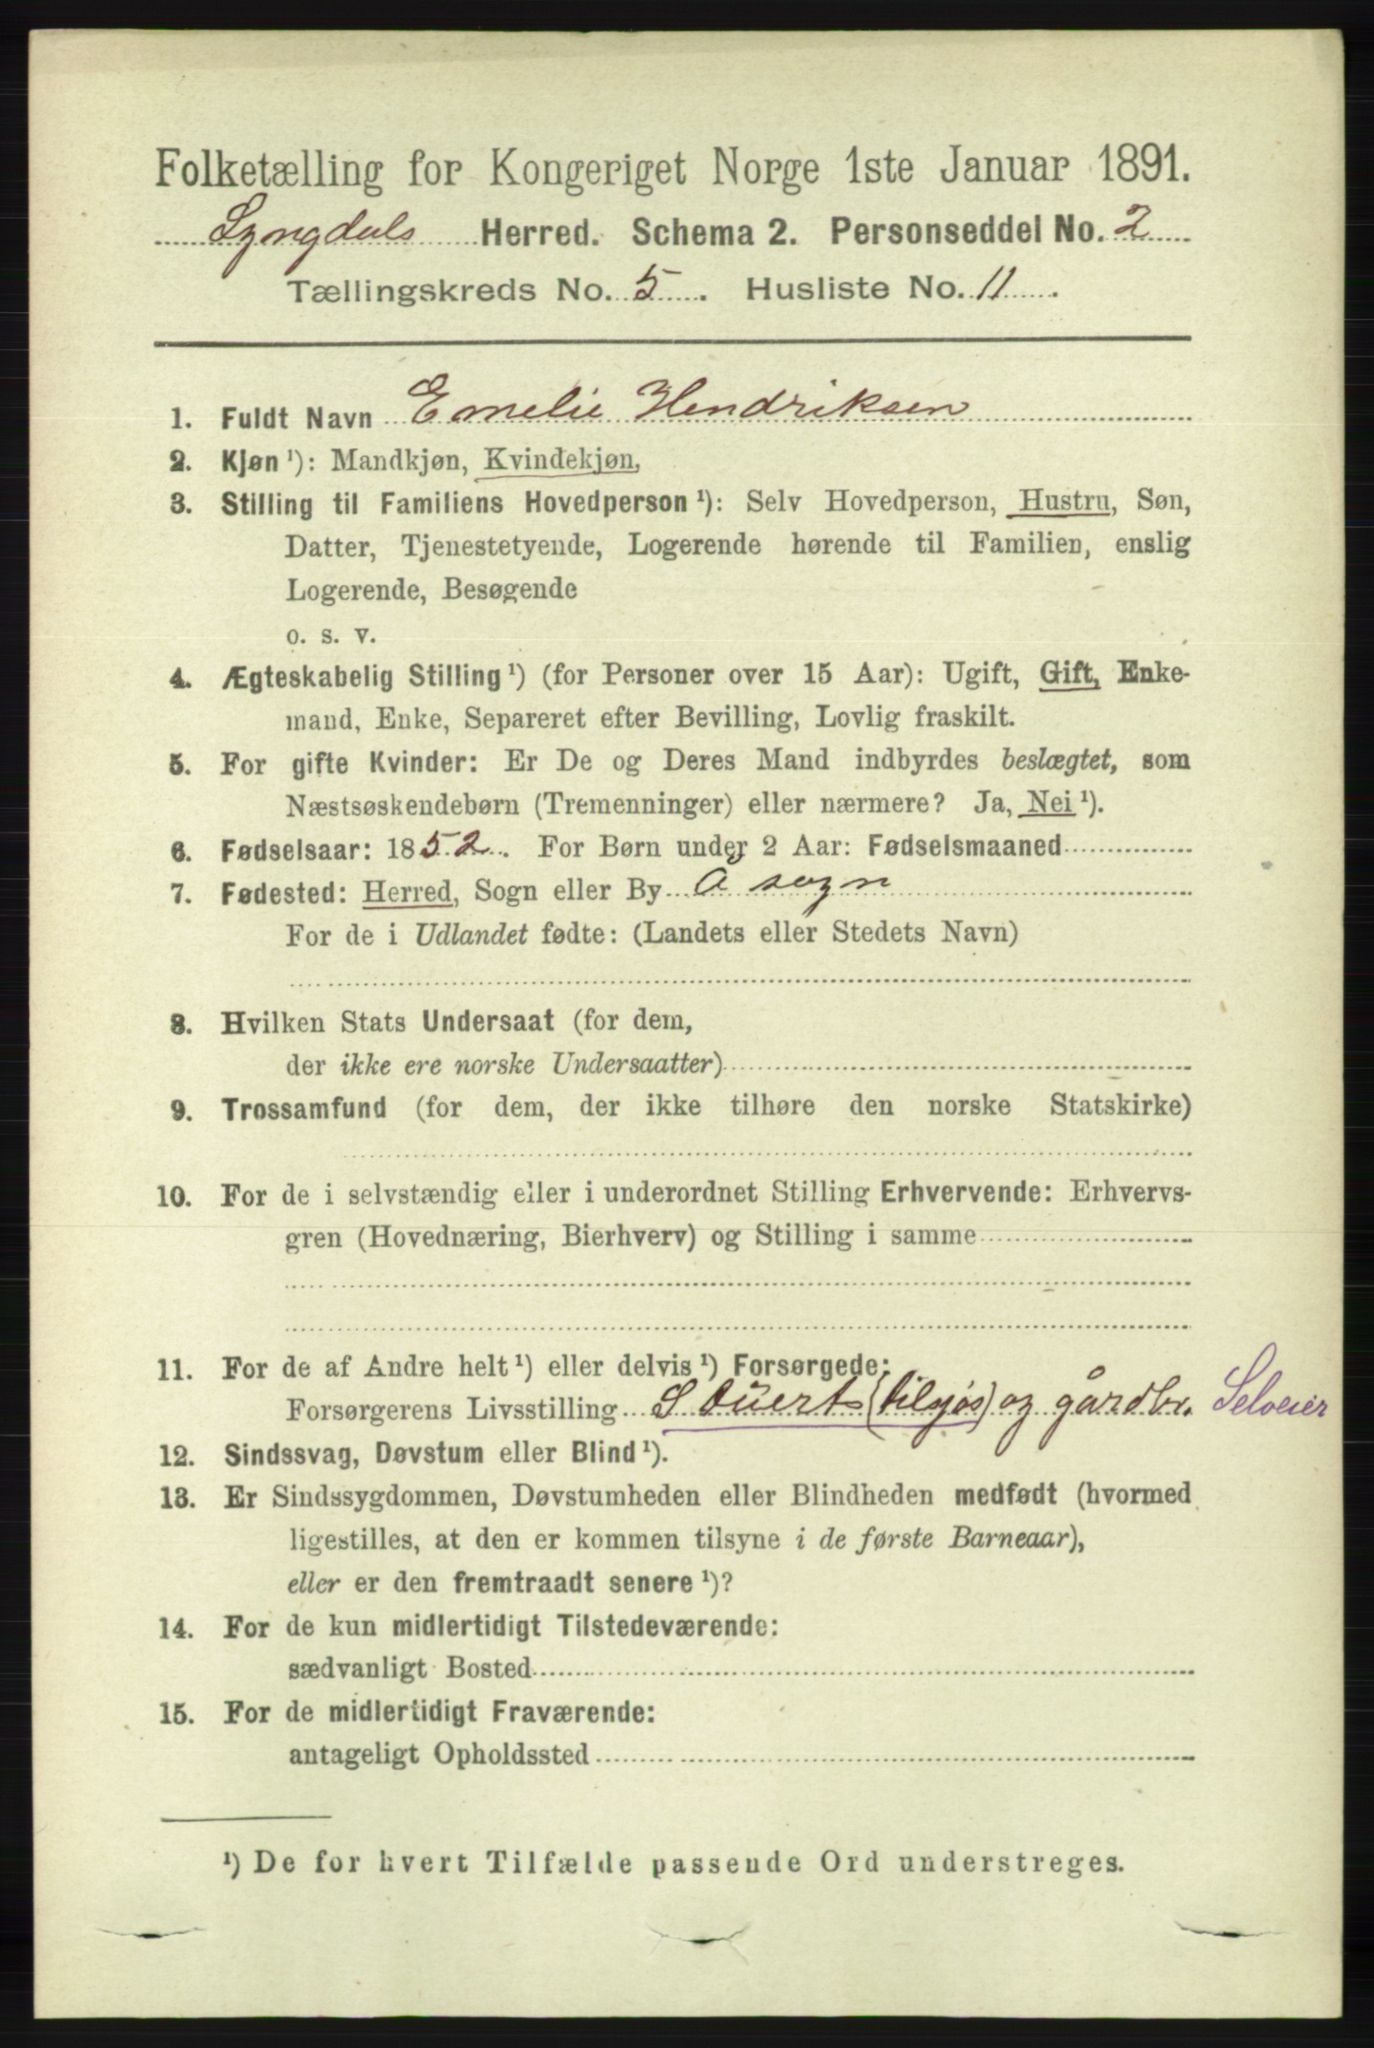 Folketælling for Kongeriget Norge 1ste Januar 1891.
Lyngdals Herred. Schema 2. Personseddel No. 2
Tællingskreds No. 5. Husliste No. 11.
1. Fuldt Navn Emelie Hendriksen
2. Kjøn ¹): Mandkjøn, Kvindekjøn,
3. Stilling til Familiens Hovedperson ¹): Selv Hovedperson, Hustru, Søn,
Datter, Tjenestetyende, Logerende hørende til Familien, enslig
Logerende, Besøgende
o. s. v.
4. Ægteskabelig Stilling ¹) (for Personer over 15 Aar): Ugift, Gift, Enke-
mand, Enke, Separeret efter Bevilling, Lovlig fraskilt.
5. For gifte Kvinder: Er De og Deres Mand indbyrdes beslægtet, som
Næstsøskendebørn (Tremenninger) eller nærmere? Ja, Nei ¹).
6. Fødselsaar: 1852. For Børn under 2 Aar: Fødselsmaaned
7. Fødested: Herred, Sogn eller By Å sogn
For de i Udlandet fødte: (Landets eller Stedets Navn)
8. Hvilken Stats Undersaat (for dem,
der ikke ere norske Undersaatter)
9. Trossamfund (for dem, der ikke tilhøre den norske Statskirke)
10. For de i selvstændig eller i underordnet Stilling Erhvervende: Erhvervs-
gren (Hovednæring, Bierhverv) og Stilling i samme
11. For de af Andre helt ¹) eller delvis ¹) Forsørgede:
Forsørgerens Livsstilling (tilsjøs) og gårdbr. Selveier
12. Sindssvag, Døvstum eller Blind ¹).
13. Er Sindssygdommen, Døvstumheden eller Blindheden medfødt (hvormed
ligestilles, at den er kommen tilsyne i de første Barneaar),
eller er den fremtraadt senere ¹)?
14. For de kun midlertidigt Tilstedeværende:
sædvanligt Bosted
15. For de midlertidigt Fraværende:
antageligt Opholdssted
¹) De for hvert Tilfælde passende Ord understreges.